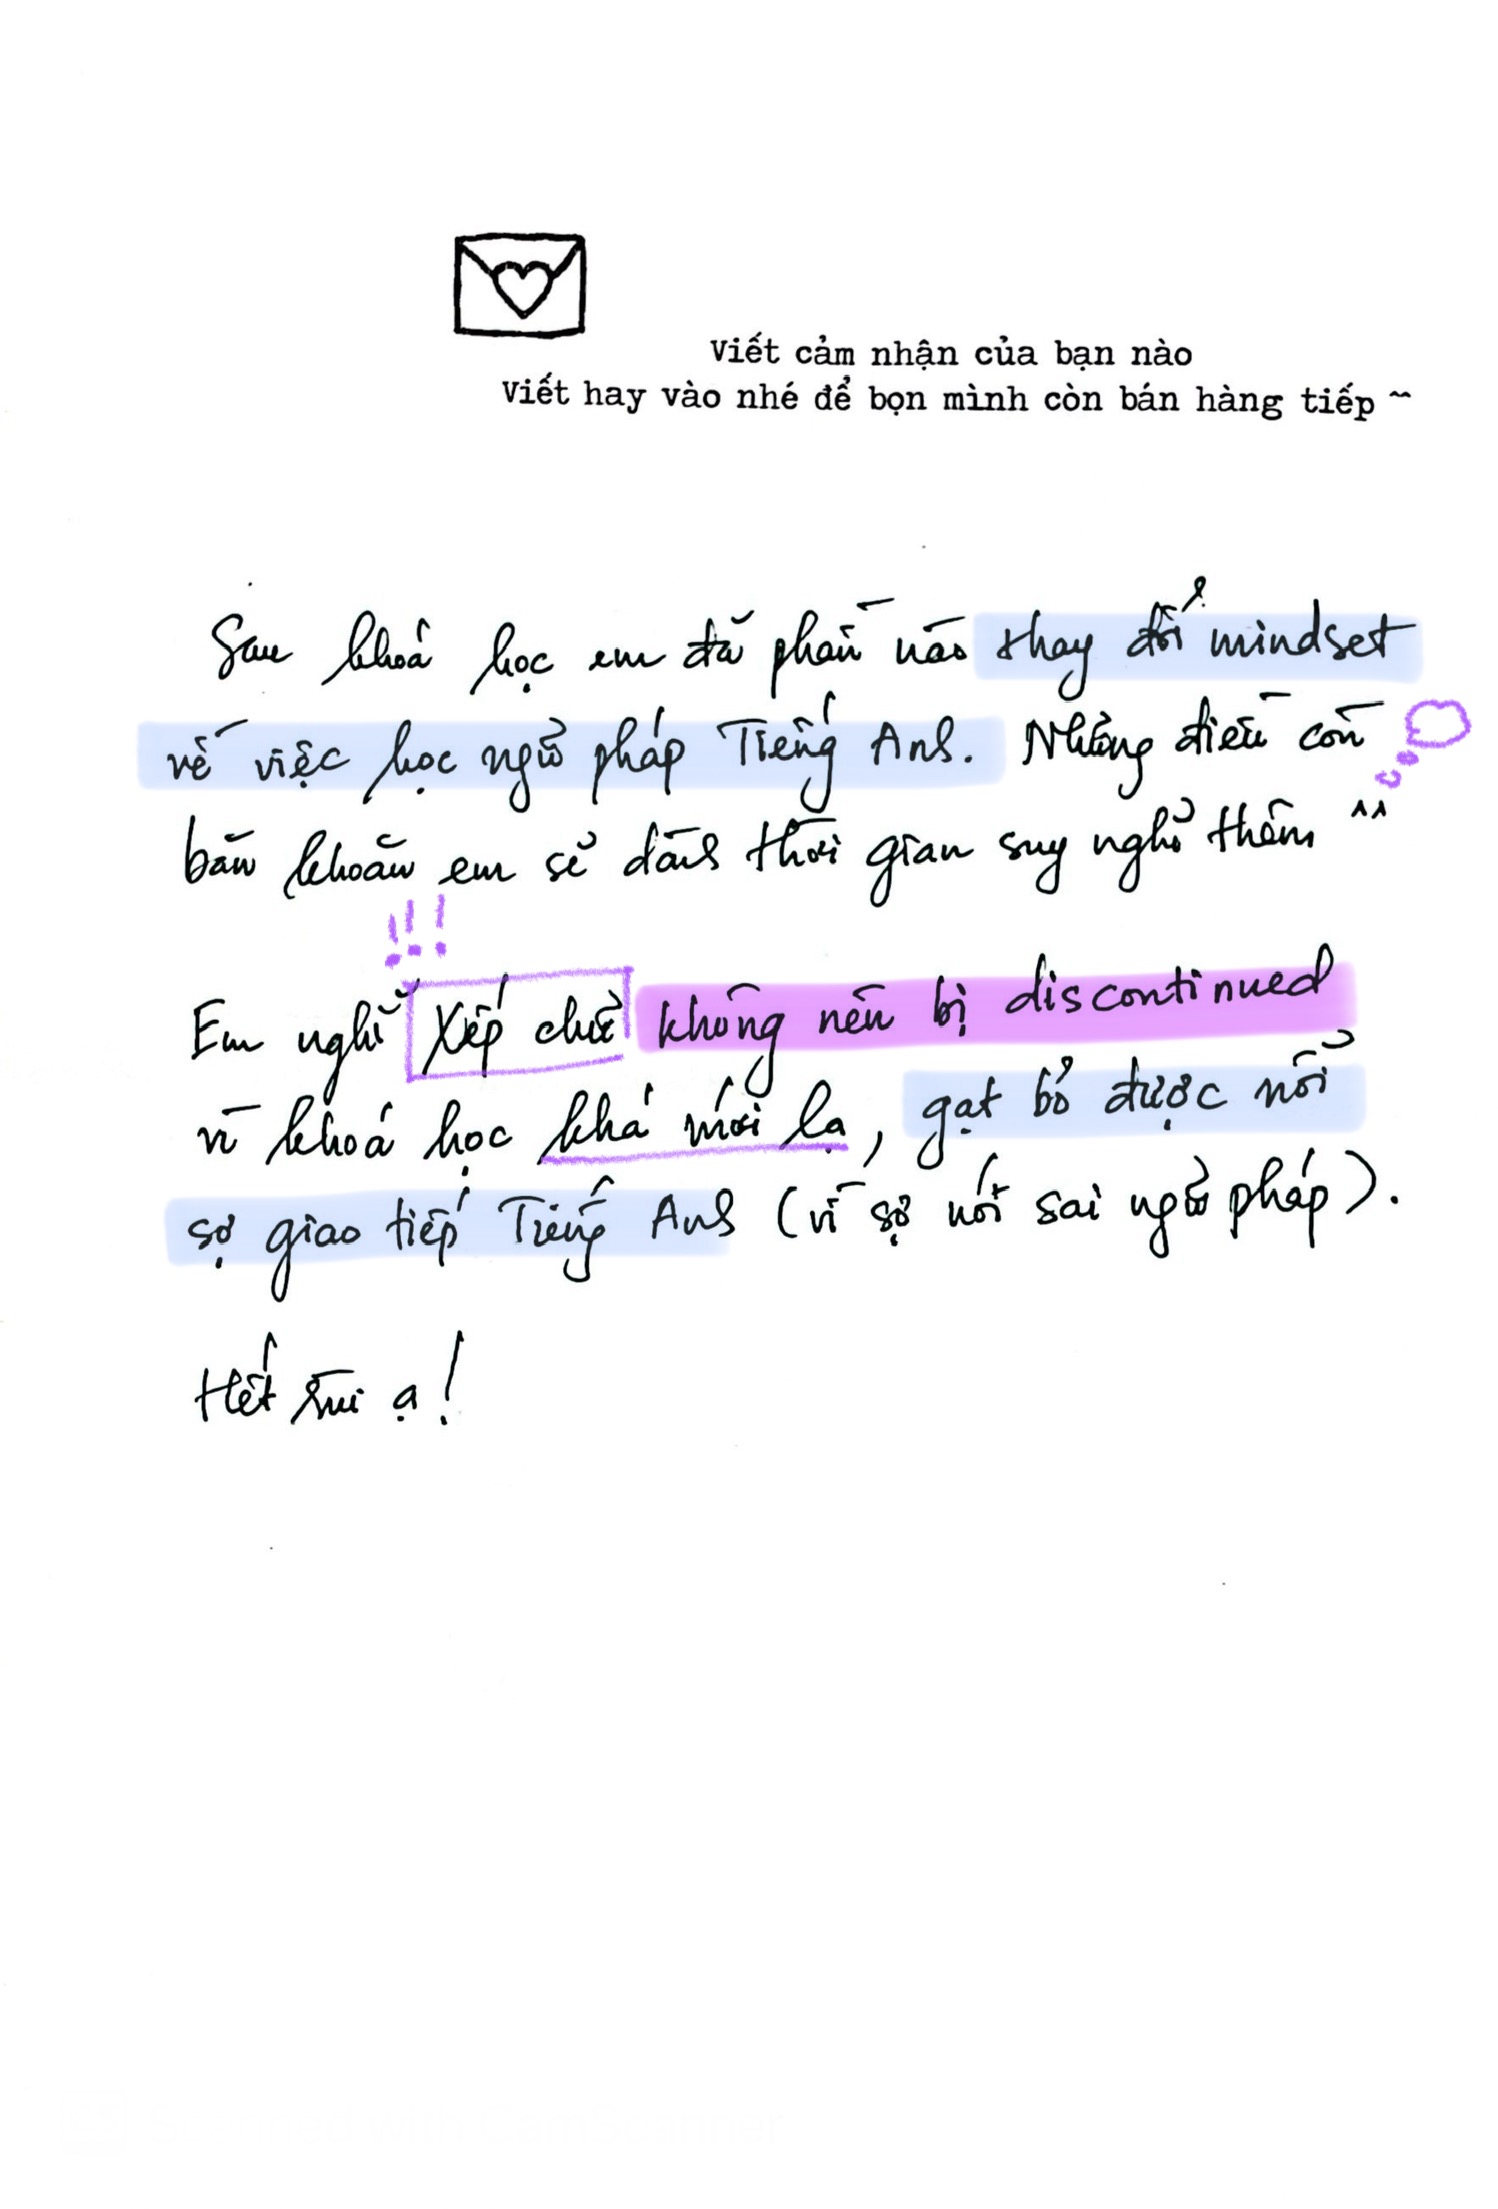 Viết cảm nhận của bạn nào
Viết hay vào nhé để bọn mình còn bán hàng tiếp ~
Sau khoá học em đã phần nào thay đổi mindset
về việc học ngữ pháp Tiếng Anh. Những điều còn
băn khoăn em sẽ dành thời gian suy nghĩ thêm ^^
!!!
Em nghĩ Xếp chữ không nên bị discontinued
vì khoá học khá mới lạ, gạt bỏ được nỗi
sợ giao tiếp Tiếng Anh (vì sợ nói sai ngữ pháp).
Hết rùi ạ!